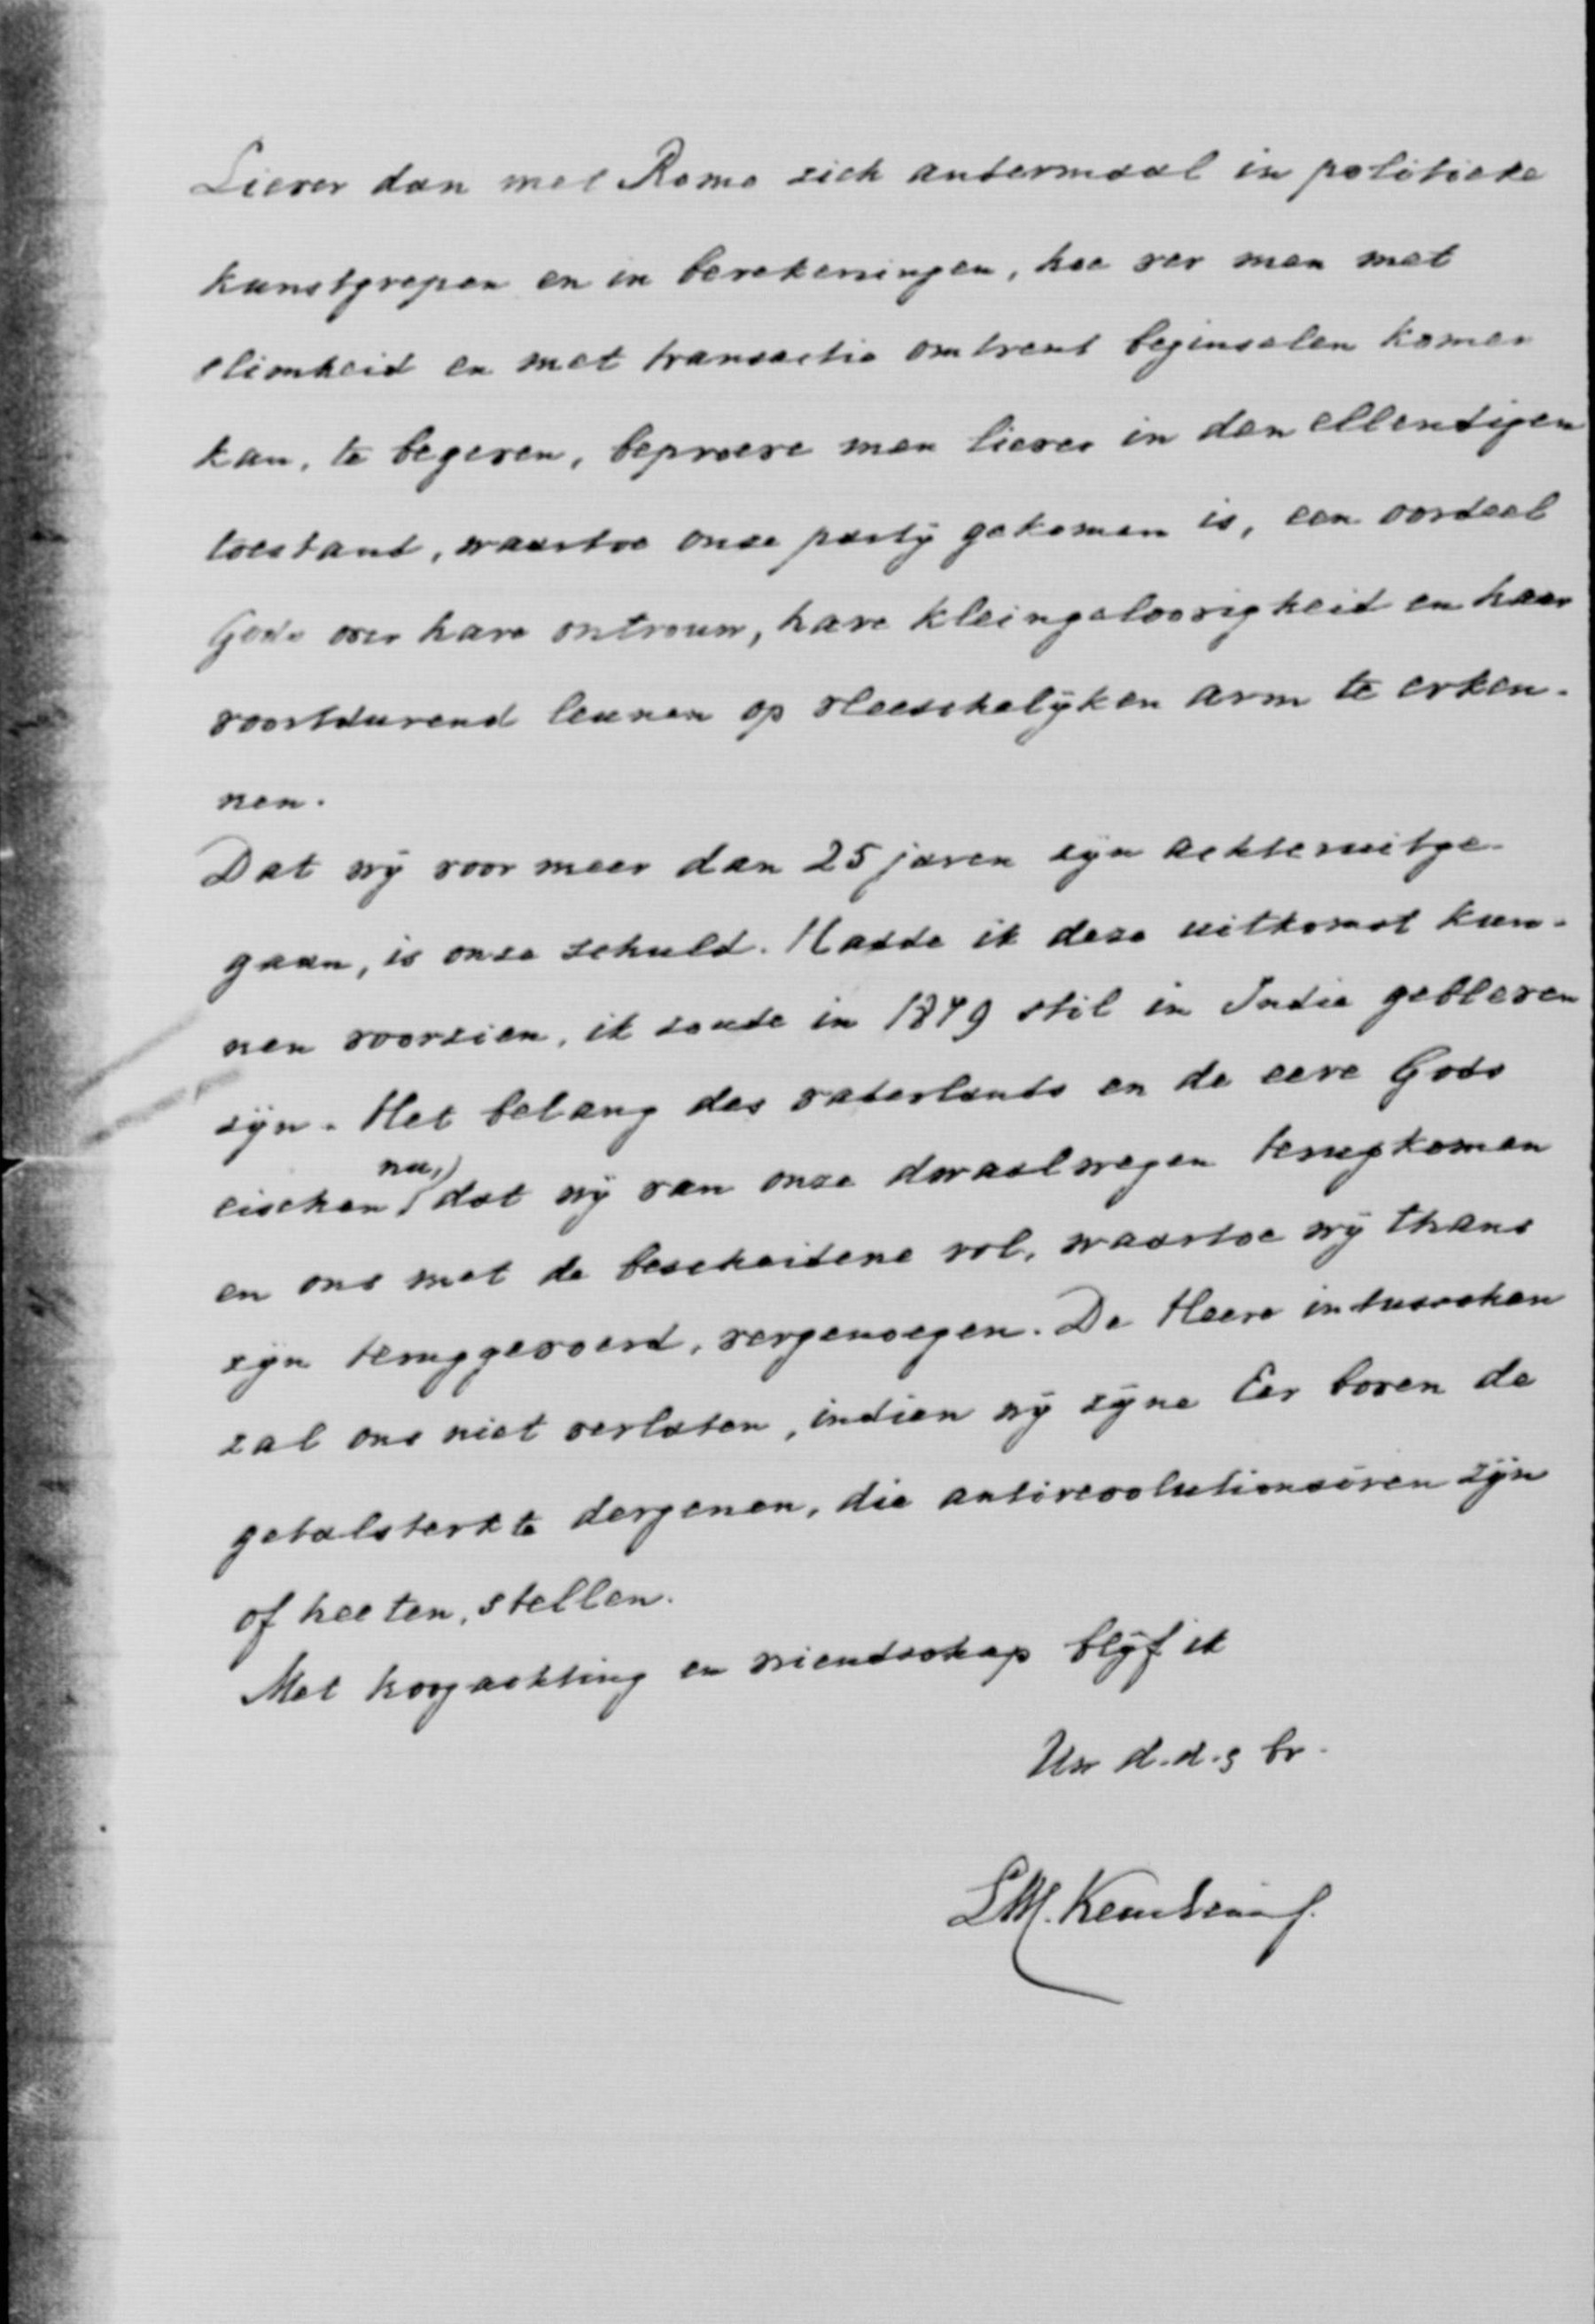 Liever dan met Rome zich andermaal in politieke
kunstgrepen en in berekeningen, hoe ver men met
slimheid en met transactie omtrent beginselen komen
kan, te begeven, beproeve men liever in den ellendigen
toestand, waartoe onze partij gekomen is, een oordeel
Gods over hare ontrouw, hare kleingeloovigheid en haar
voortdurend leunen op vleeschelijken arm te erken-
nen.
Dat wij voor meer dan 25 jaren zijn achteruitge-
gaan, is onze schuld. Hadde ik deze uitkomst kun-
nen voorzien, ik zoude in 1879 stil in Indie gebleven
zijn. Het belang des vaderlands en de eere Gods
eischen nu, dat wij van onze dwaalwegen terugkomen
en ons met de bescheidene rol, waartoe wij thans
zijn teruggevoerd, vergenoegen. De Heere intusschen
zal ons niet verlaten, indien wij zijne Eer boven de
getalsterkte dergenen, die antirevolutionairen zijn
of heeten, stellen.
Met hoogachting en vriendschap blijf ik
Uw d.d.s br.
LM. Keuchenius.